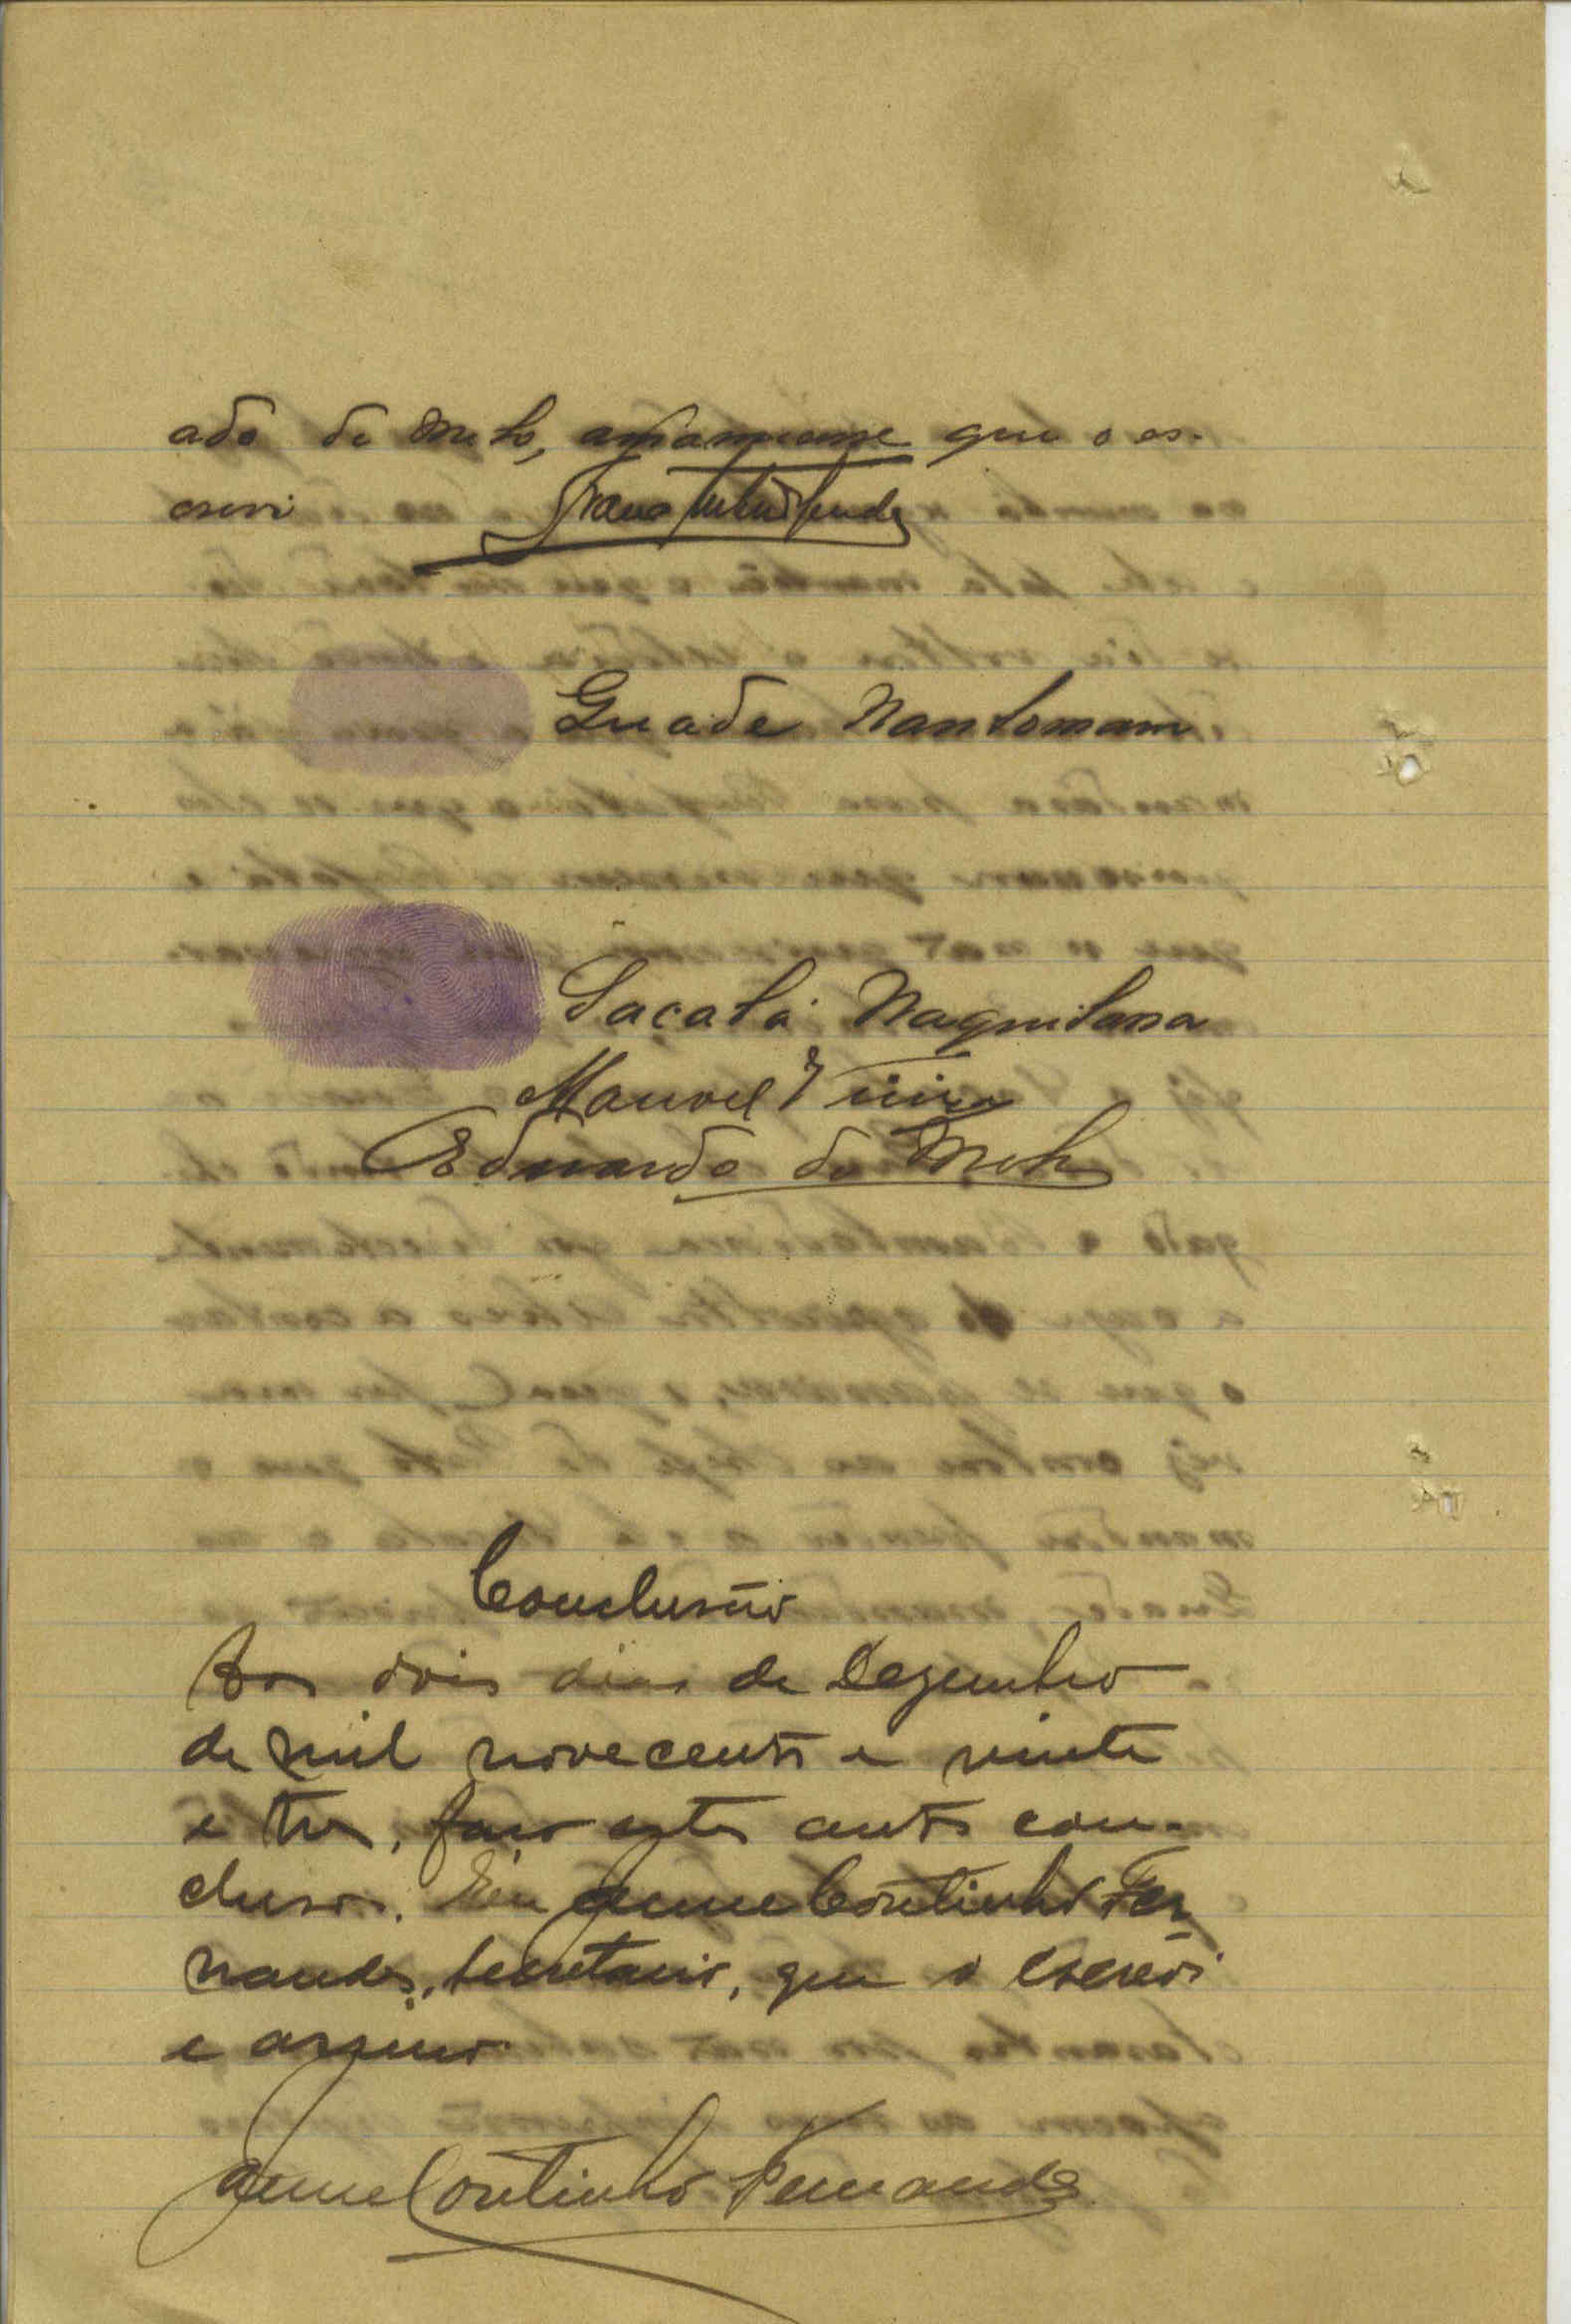 ado de Melo, amanuense que o es-
crevi
Guade Nantomam
Sacatá Naquitana
Manoel
Eduardo de Melo
Conclusão
Aos dois dias de Dezembro
de mil novecentos e vinte
e tres, faço estes autos con-
clusos. Eu Jaime Coutinho Fer
nandes, secretario, que o escrevi
e assino
Jaime Coutinho Fernandes